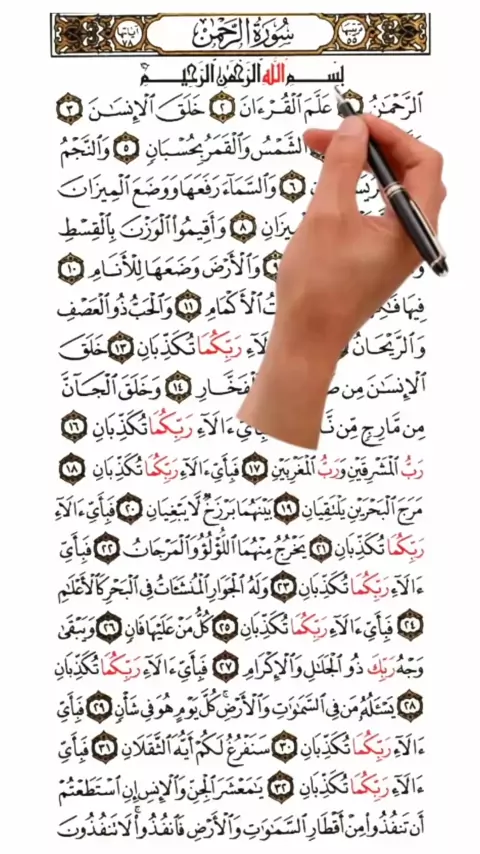 ترتيبها ٥٥ سُورَةُ الرَّحْمٰن آياتها ٧٨
بِسْمِ ٱللَّهِ ٱلرَّحْمَٰنِ ٱلرَّحِيمِ
ٱلرَّحْمَٰنُ عَلَّمَ ٱلْقُرْءَانَ ٢ خَلَقَ ٱلْإِنسَٰنَ ٣
ٱلشَّمْسُ وَٱلْقَمَرُ بِحُسْبَانٍ ٥ وَٱلنَّجْمُ
٦ وَٱلسَّمَآءَ رَفَعَهَا وَوَضَعَ ٱلْمِيزَانَ
٨ وَأَقِيمُوا۟ ٱلْوَزْنَ بِٱلْقِسْطِ
٩ وَٱلْأَرْضَ وَضَعَهَا لِلْأَنَامِ ١٠
فِيهَا ٱلْأَكْمَامِ ١١ وَٱلْحَبُّ ذُو ٱلْعَصْفِ
وَٱلرَّيْحَانُ رَبِّكُمَا تُكَذِّبَانِ ١٣ خَلَقَ
ٱلْإِنسَٰنَ مِن ١٤ وَخَلَقَ ٱلْجَآنَّ
مِن مَّارِجٍ مِّن ءَالَآءِ رَبِّكُمَا تُكَذِّبَانِ ١٦
رَبُّ ٱلْمَشْرِقَيْنِ وَرَبُّ ٱلْمَغْرِبَيْنِ ١٧ فَبِأَىِّ ءَالَآءِ رَبِّكُمَا تُكَذِّبَانِ ١٨
مَرَجَ ٱلْبَحْرَيْنِ يَلْتَقِيَانِ ١٩ بَيْنَهُمَا بَرْزَخٌ لَّا يَبْغِيَانِ ٢٠ فَبِأَىِّ ءَالَآءِ
رَبِّكُمَا تُكَذِّبَانِ ٢١ يَخْرُجُ مِنْهُمَا ٱللُّؤْلُؤُ وَٱلْمَرْجَانُ ٢٢ فَبِأَىِّ
ءَالَآءِ رَبِّكُمَا تُكَذِّبَانِ ٢٣ وَلَهُ ٱلْجَوَارِ ٱلْمُنشَـَٔاتُ فِى ٱلْبَحْرِ كَٱلْأَعْلَٰمِ
٢٤ فَبِأَىِّ ءَالَآءِ رَبِّكُمَا تُكَذِّبَانِ ٢٥ كُلُّ مَنْ عَلَيْهَا فَانٍ ٢٦ وَيَبْقَىٰ
وَجْهُ رَبِّكَ ذُو ٱلْجَلَٰلِ وَٱلْإِكْرَامِ ٢٧ فَبِأَىِّ ءَالَآءِ رَبِّكُمَا تُكَذِّبَانِ
٢٨ يَسْـَٔلُهُۥ مَن فِى ٱلسَّمَٰوَٰتِ وَٱلْأَرْضِ ۚ كُلَّ يَوْمٍ هُوَ فِى شَأْنٍ ٢٩ فَبِأَىِّ
ءَالَآءِ رَبِّكُمَا تُكَذِّبَانِ ٣٠ سَنَفْرُغُ لَكُمْ أَيُّهَ ٱلثَّقَلَانِ ٣١ فَبِأَىِّ
ءَالَآءِ رَبِّكُمَا تُكَذِّبَانِ ٣٢ يَٰمَعْشَرَ ٱلْجِنِّ وَٱلْإِنسِ إِنِ ٱسْتَطَعْتُمْ
أَن تَنفُذُوا۟ مِنْ أَقْطَارِ ٱلسَّمَٰوَٰتِ وَٱلْأَرْضِ فَٱنفُذُوا۟ ۚ لَا تَنفُذُونَ